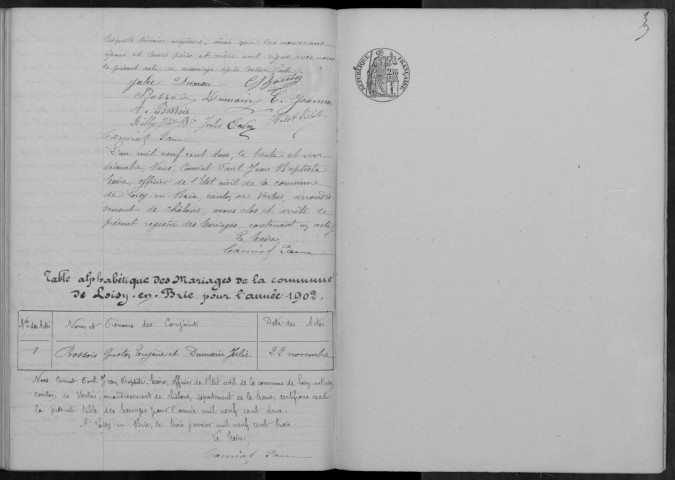 lesquels témoins majeurs, ainsi que les nouveaux
époux et leurs père et mère ont signé avec nous
le présent acte de mariage après lecture faite
Julie Dumain
Dumain E. Jeanne
A. Bossois
Jules
Camiat Paul
L'an mil neuf cent deux, le trente et un
décembre, Nous, Camiat Paul Jean Baptiste
Maire, officier de l'Etat civil de la commune
de Loisy-en-Brie, canton de Vertus, arrondis-
sement de Châlons, avons clos et arrêté le
présent registre des Mariages, contenant un acte
Le Maire,
Camiat Paul
Table alphabétique des Mariages de la commune
de Loisy-en-Brie pour l'année 1902.
Nos des Actes Noms et Prénoms des Conjoints Date des Actes
1 Bossois Gaston Eugène et Dumain Julie 22 novembre
Nous, Camiat Paul Jean Baptiste, Maire, officier de l'Etat civil de la commune de Loisy-en-Brie,
canton de Vertus, arrondissement de Châlons, département de la Marne, certifions exacte
la présente table des Mariages pour l'année mil neuf cent deux.
A Loisy-en-Brie, le trois janvier mil neuf cent trois
Le Maire,
Camiat Paul
REPUBLIQUE FRANÇAISE